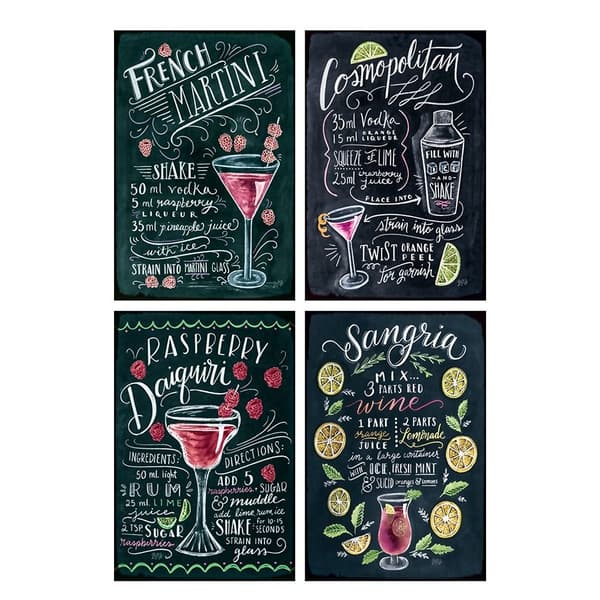 FRENCH
MARTINI
SHAKE
50 ml vodka
5 ml raspberry
LIQUEUR
35 ml pineapple juice
with ice
STRAIN INTO MARTINI GLASS
Cosmopolitan
35 ml Vodka
15 ml ORANGE
LIQUEUR
SQUEEZE OF LIME
25 ml cranberry
juice
PLACE INTO
FILL WITH
ICE
AND
SHAKE
strain into glass
TWIST ORANGE
PEEL
for garnish
RASPBERRY
Daiquiri
INGREDIENTS:
50 ml light
RUM
25 ml LIME
juice
2 TSP SUGAR
raspberries
DIRECTIONS:
ADD 5
raspberries + SUGAR
& muddle
add lime, rum, ice
SHAKE for 10-15
SECONDS
STRAIN INTO
glass
Sangria
MIX...
3 PARTS RED
wine
1 PART
orange
JUICE
2 PARTS
Lemonade
in a large container
WITH ICE, FRESH MINT
& SLICED oranges & lemons